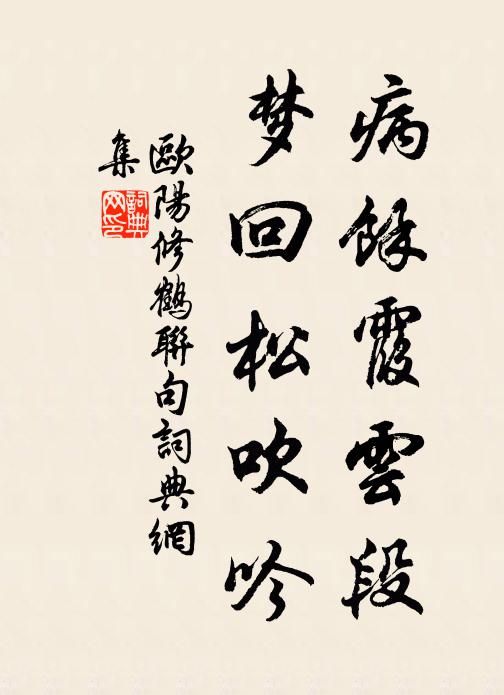 病餘霞雲段
梦回松吹吟
歐陽修鶴聯句詞典網
集
詞典網印